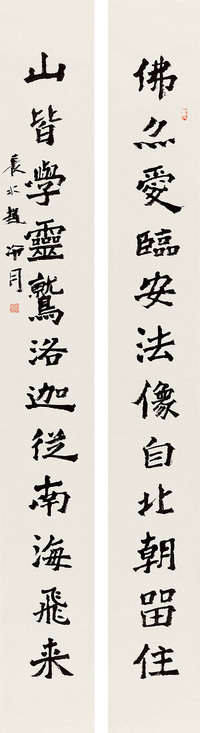 佛亦愛臨安法像自北朝留住
山皆學靈鷲洛迦從南海飛来
袁水趙